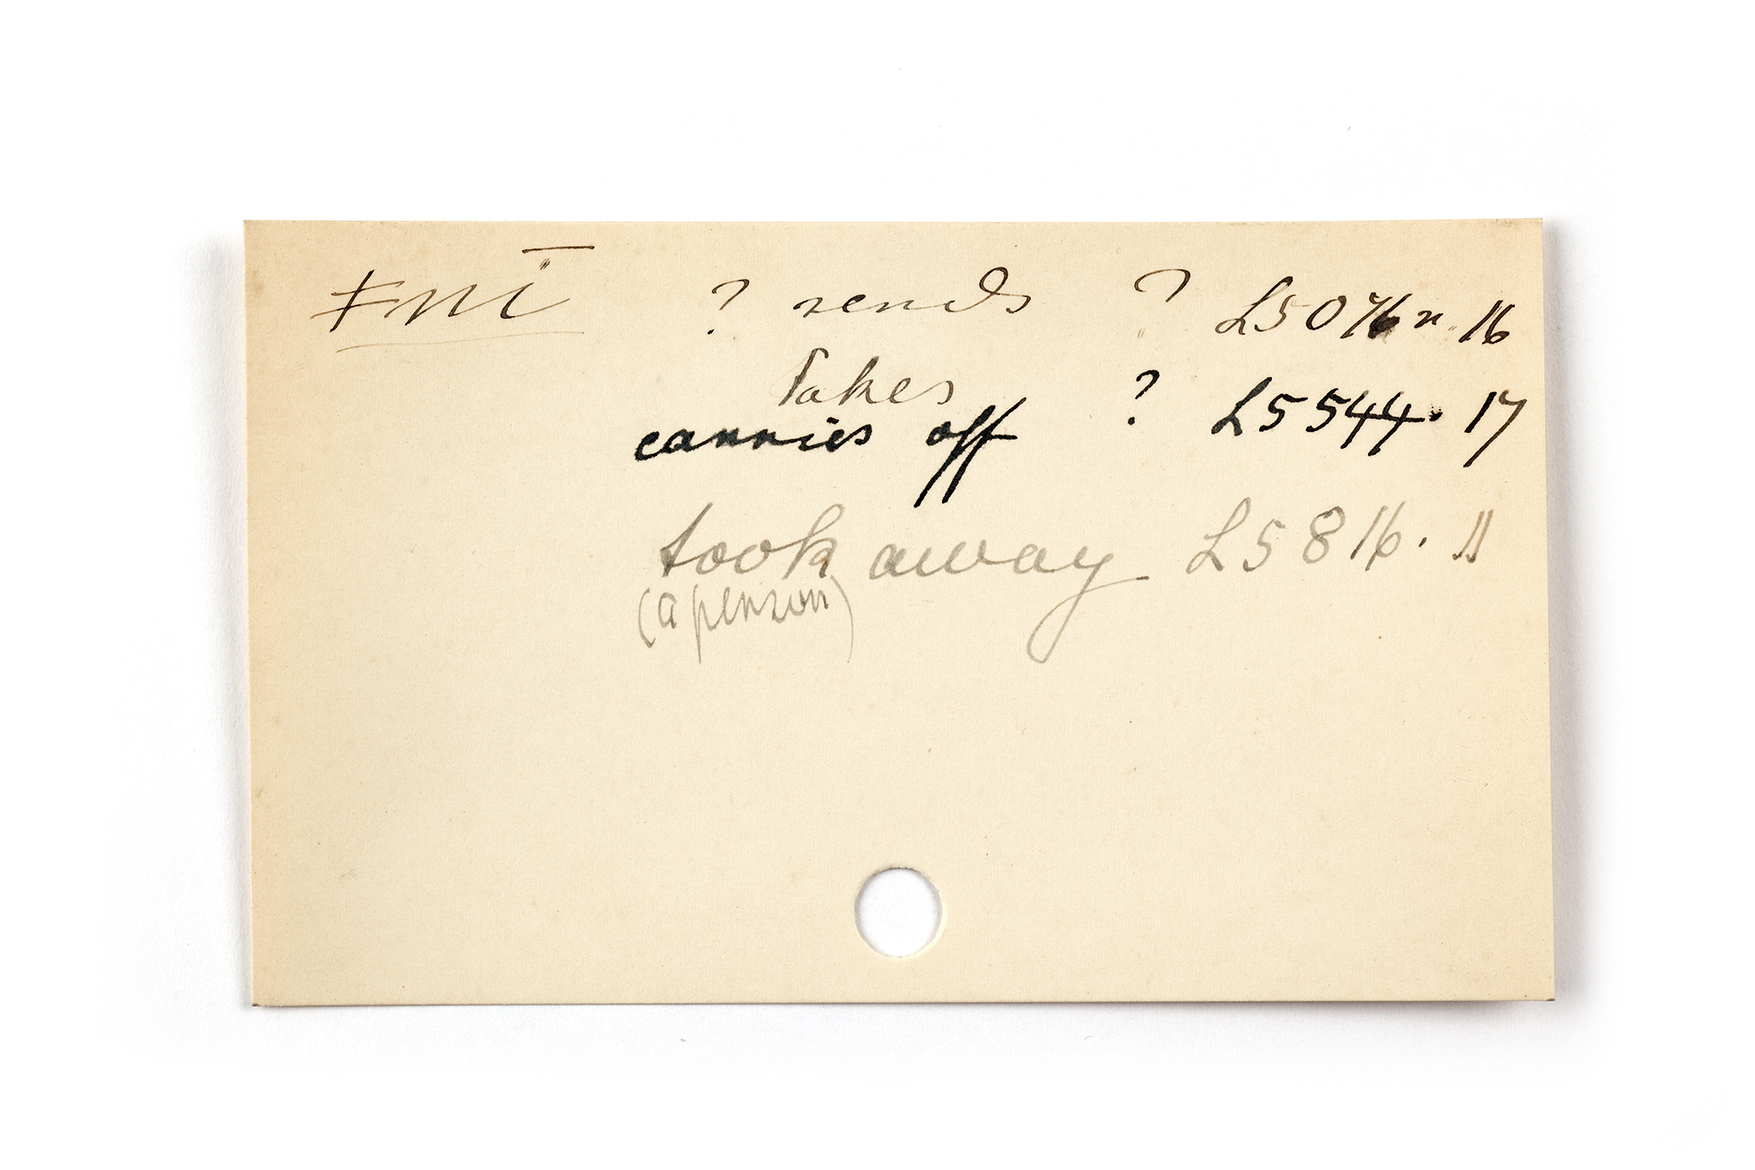 ǂnī̆ ? sends ? L5076n. 16
takes
carries off ? L5544. 17
took away L5816. 11
(a person)